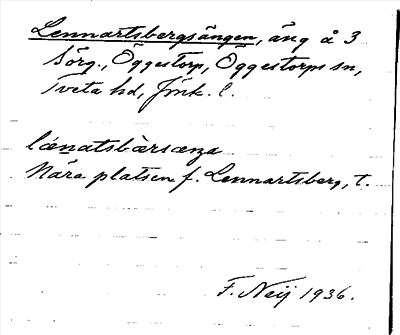 Lennartsbergsängen, äng å 3
Sörg., Öggestorp, Öggestorps sn,
Tveta hd, Jönk. l.
lænatsbàrsæŋa
Nära platsen f. Lennartsberg, t.
F. Neij 1936.